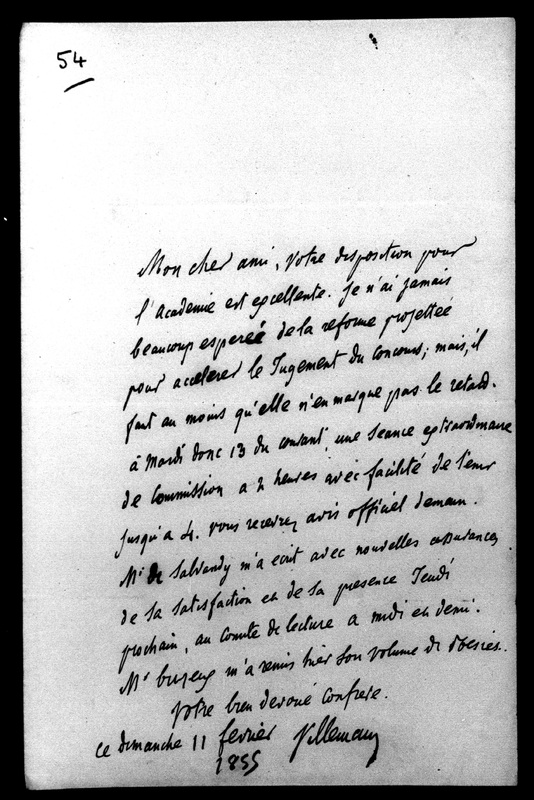 54
Mon cher ami, votre disposition pour
l'academie est excellente. Je n'ai jamais
beaucoup esperé de la reforme projettée
pour accelerer le Jugement du concours; mais, il
faut au moins qu'elle n'en marque pas le retard.
à Mardi donc 13 du courant une seance extraordinaire
de Commission a 2 heures avec facilité de
jusqu'a 4. vous recevrez avis officiel demain.
Mr de Salvandy m'a ecrit avec nouvelles assurances
de sa satisfaction et de sa presence Jeudi
prochain, au Comité de lecture a midi et demi.
Mr m'a remis hier son volume de poesies.
Votre bien devoué confrere.
ce dimanche 11 fevrier Villemain
1855